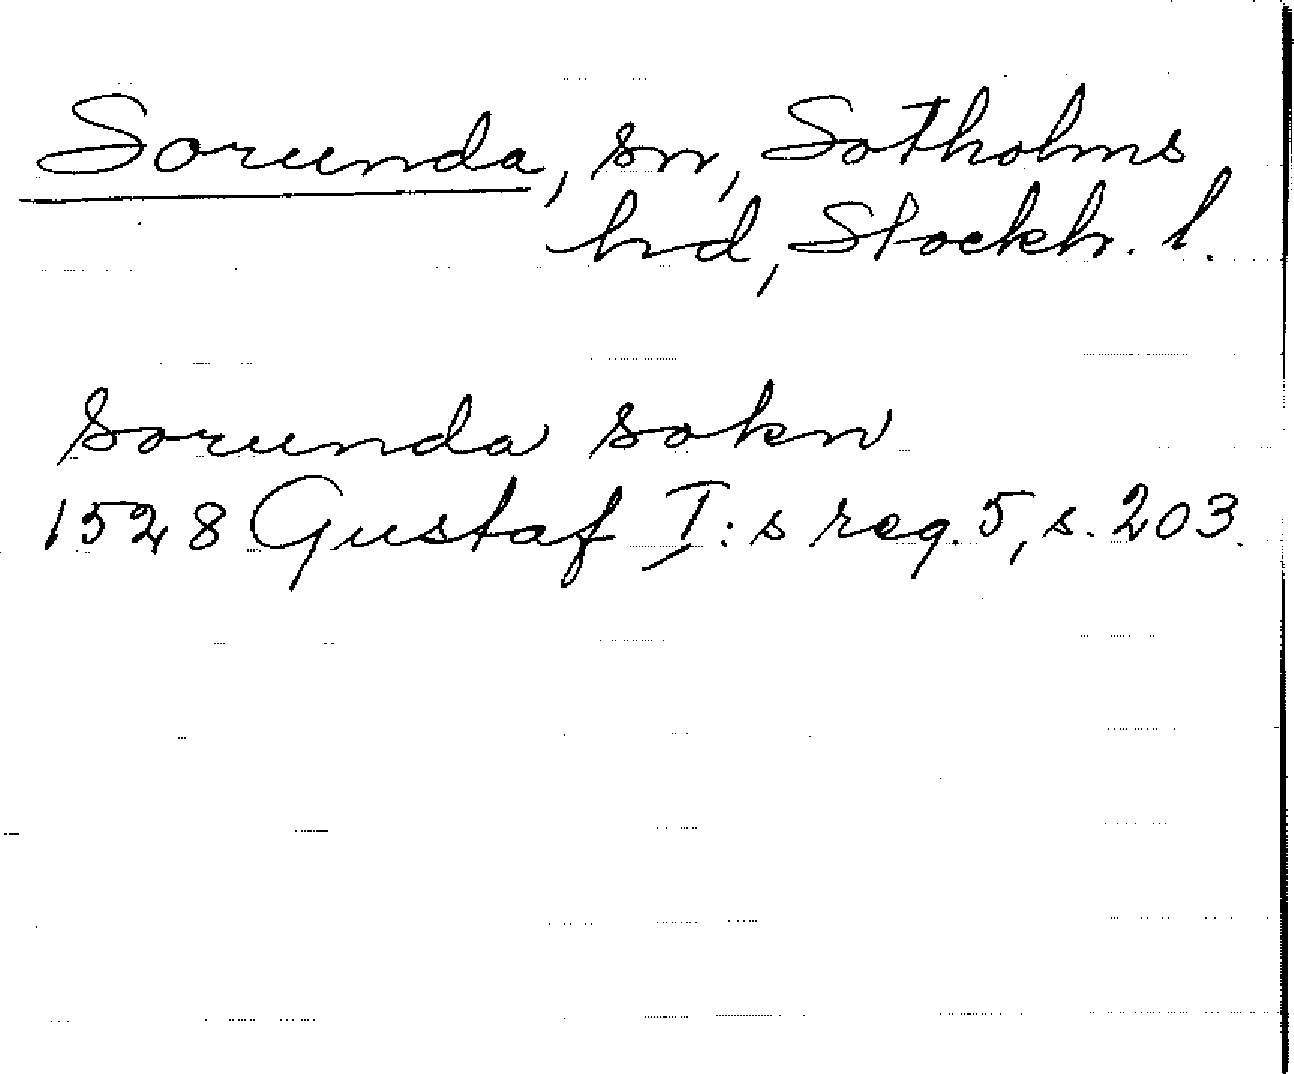 Sorunda, sn, Sotholms
hd, Stockh. l.
Sorunda sokn
1528 Gustaf I:s reg. 5, s. 203.